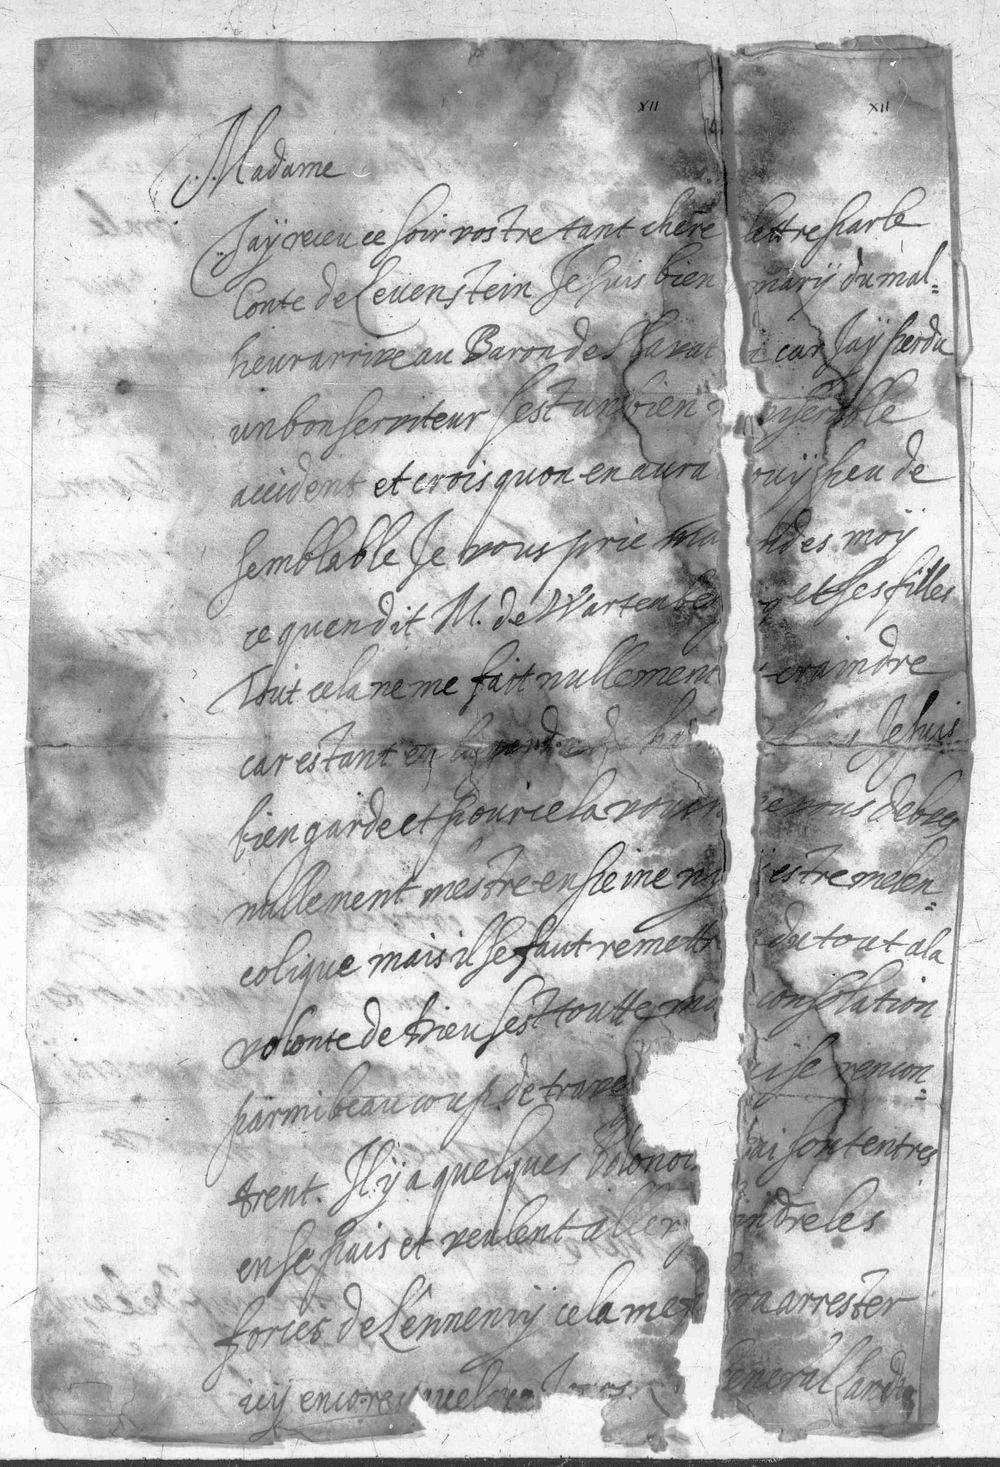 XII XII
Madame
Jaÿ receu ce soir vostre tant chere lettre par le
Conte de Levenstein Je suis bien marÿ du mal=
heur arrive au Baron de car Jaÿ perdu
un bon serviteur sest un bien miserable
accident et crois quon en aura ouÿ peu de
semblable Je vous prie mandes moÿ
ce quen dit M. de Wartenberg et ses filles
Tout cela ne me fait nullement craindre
car estant en la garde de Je suis
bien garde et pour cela vous deves
nullement mestre en peine nÿ estre melen=
colique mais il se faut remettre du tout a la
volonte de Dieu sest toutte ma consolation
parmi beaucoup de trave qui se rencon=
trent. Il ÿ a quelques Polonois qui sont entres
en se pais et veulent aller joindre les
forces de Lennemÿ cela me fera arrester
icÿ encores quelque General